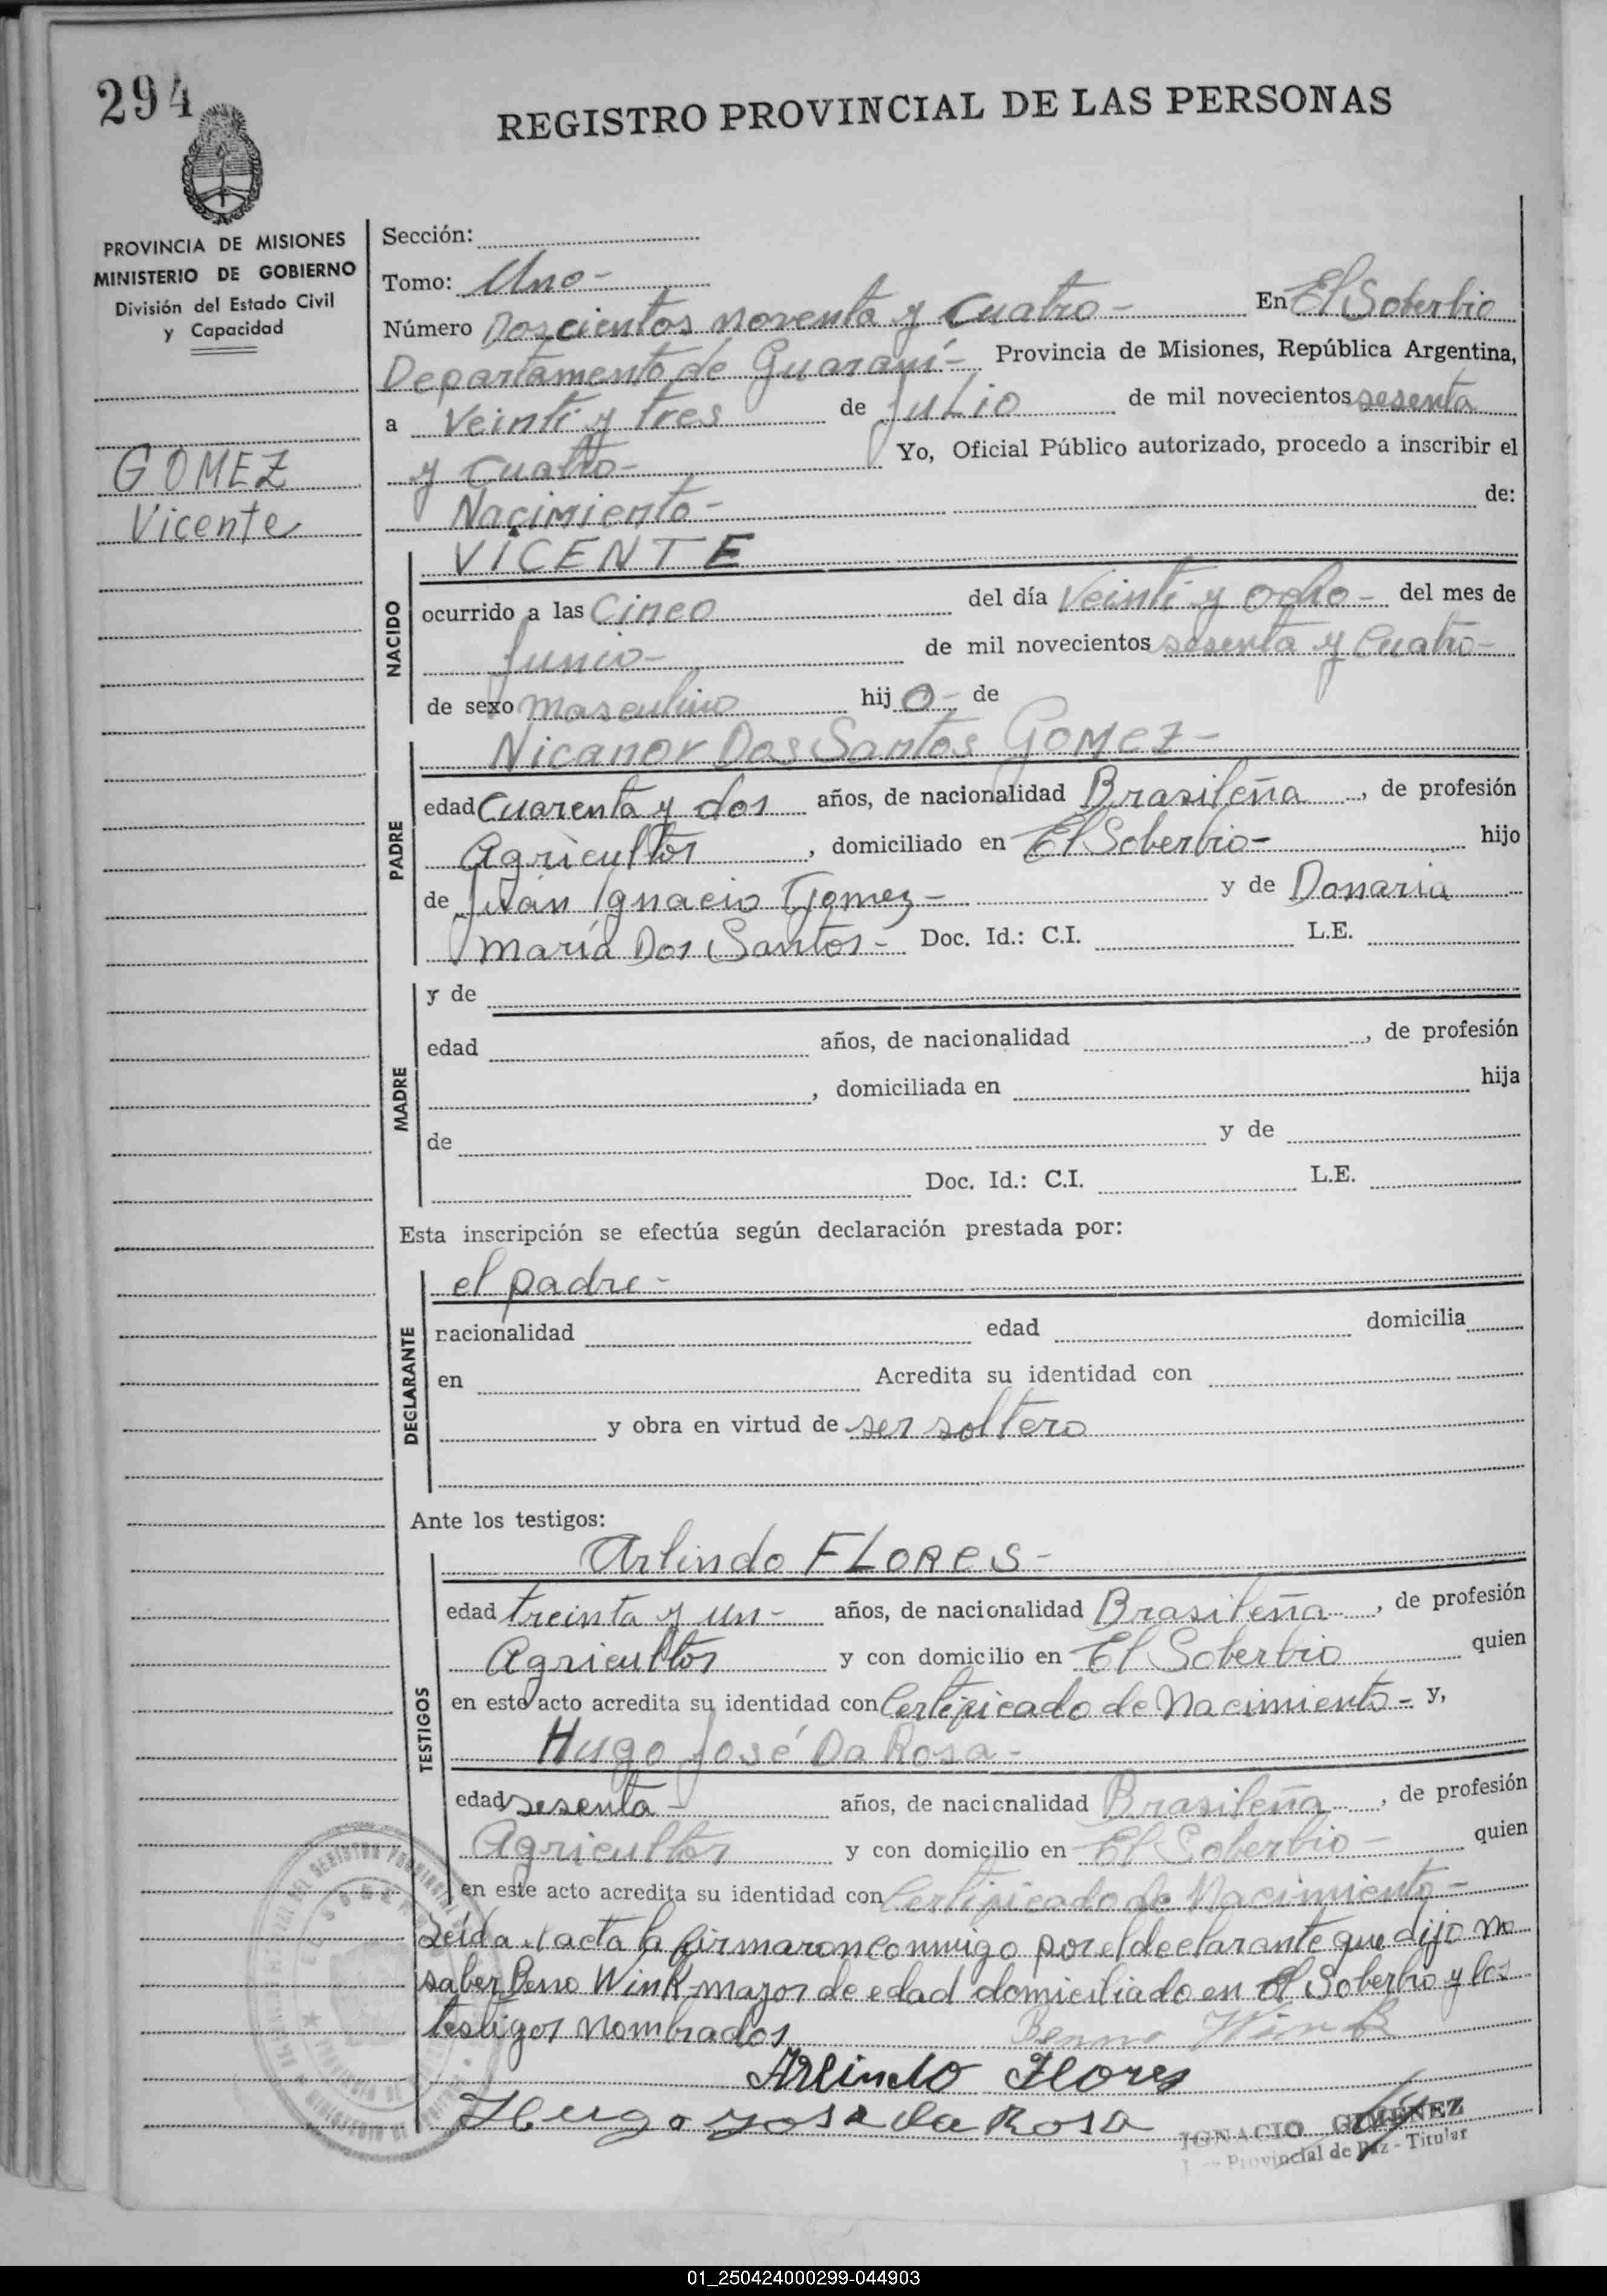 294
REGISTRO PROVINCIAL DE LAS PERSONAS
PROVINCIA DE MISIONES
MINISTERIO DE GOBIERNO
División del Estado Civil
y Capacidad
GOMEZ
Vicente
Sección:
Tomo: Uno-
Número Doscientos noventa y cuatro- En El Soberbio
Departamento de Guaraní- Provincia de Misiones, República Argentina,
a Veinti y tres de Julio de mil novecientos sesenta
y cuatro- Yo, Oficial Público autorizado, procedo a inscribir el
Nacimiento- de:
NACIDO
VICENTE
ocurrido a las Cinco del día Veinti y ocho- del mes de
Junio- de mil novecientos sesenta y cuatro-
de sexo masculino hijo- de
PADRE
Nicanor Dos Santos GOMEZ-
edad Cuarenta y dos años, de nacionalidad Brasileña, de profesión
Agricultor, domiciliado en El Soberbio- hijo
de Juán Ignacio Gomez- y de Donaria
María Dos Santos- Doc. Id.: C.I. L.E.
MADRE
y de
edad años, de nacionalidad , de profesión
, domiciliada en hija
de y de
Doc. Id.: C.I. L.E.
Esta inscripción se efectúa según declaración prestada por:
DECLARANTE
el padre-
nacionalidad edad domicilia
en Acredita su identidad con
y obra en virtud de ser soltero
Ante los testigos:
TESTIGOS
Arlindo FLORES-
edad treinta y un- años, de nacionalidad Brasileña, de profesión
Agricultor y con domicilio en El Soberbio quien
en este acto acredita su identidad con Certificado de Nacimiento- y,
Hugo José Da Rosa-
edad sesenta- años, de nacionalidad Brasileña, de profesión
Agricultor y con domicilio en El Soberbio- quien
en este acto acredita su identidad con Certificado de Nacimiento-
Leída el acta la firmaron conmigo por el declarante que dijo no
saber Beno Wink mayor de edad domiciliado en el Soberbio y los
testigos nombrados Benno Wink
Arlindo Flores
Hugo Jose da Rosa
IGNACIO GIMENEZ
Provincial de Paz - Titular
01_250424000299-044903